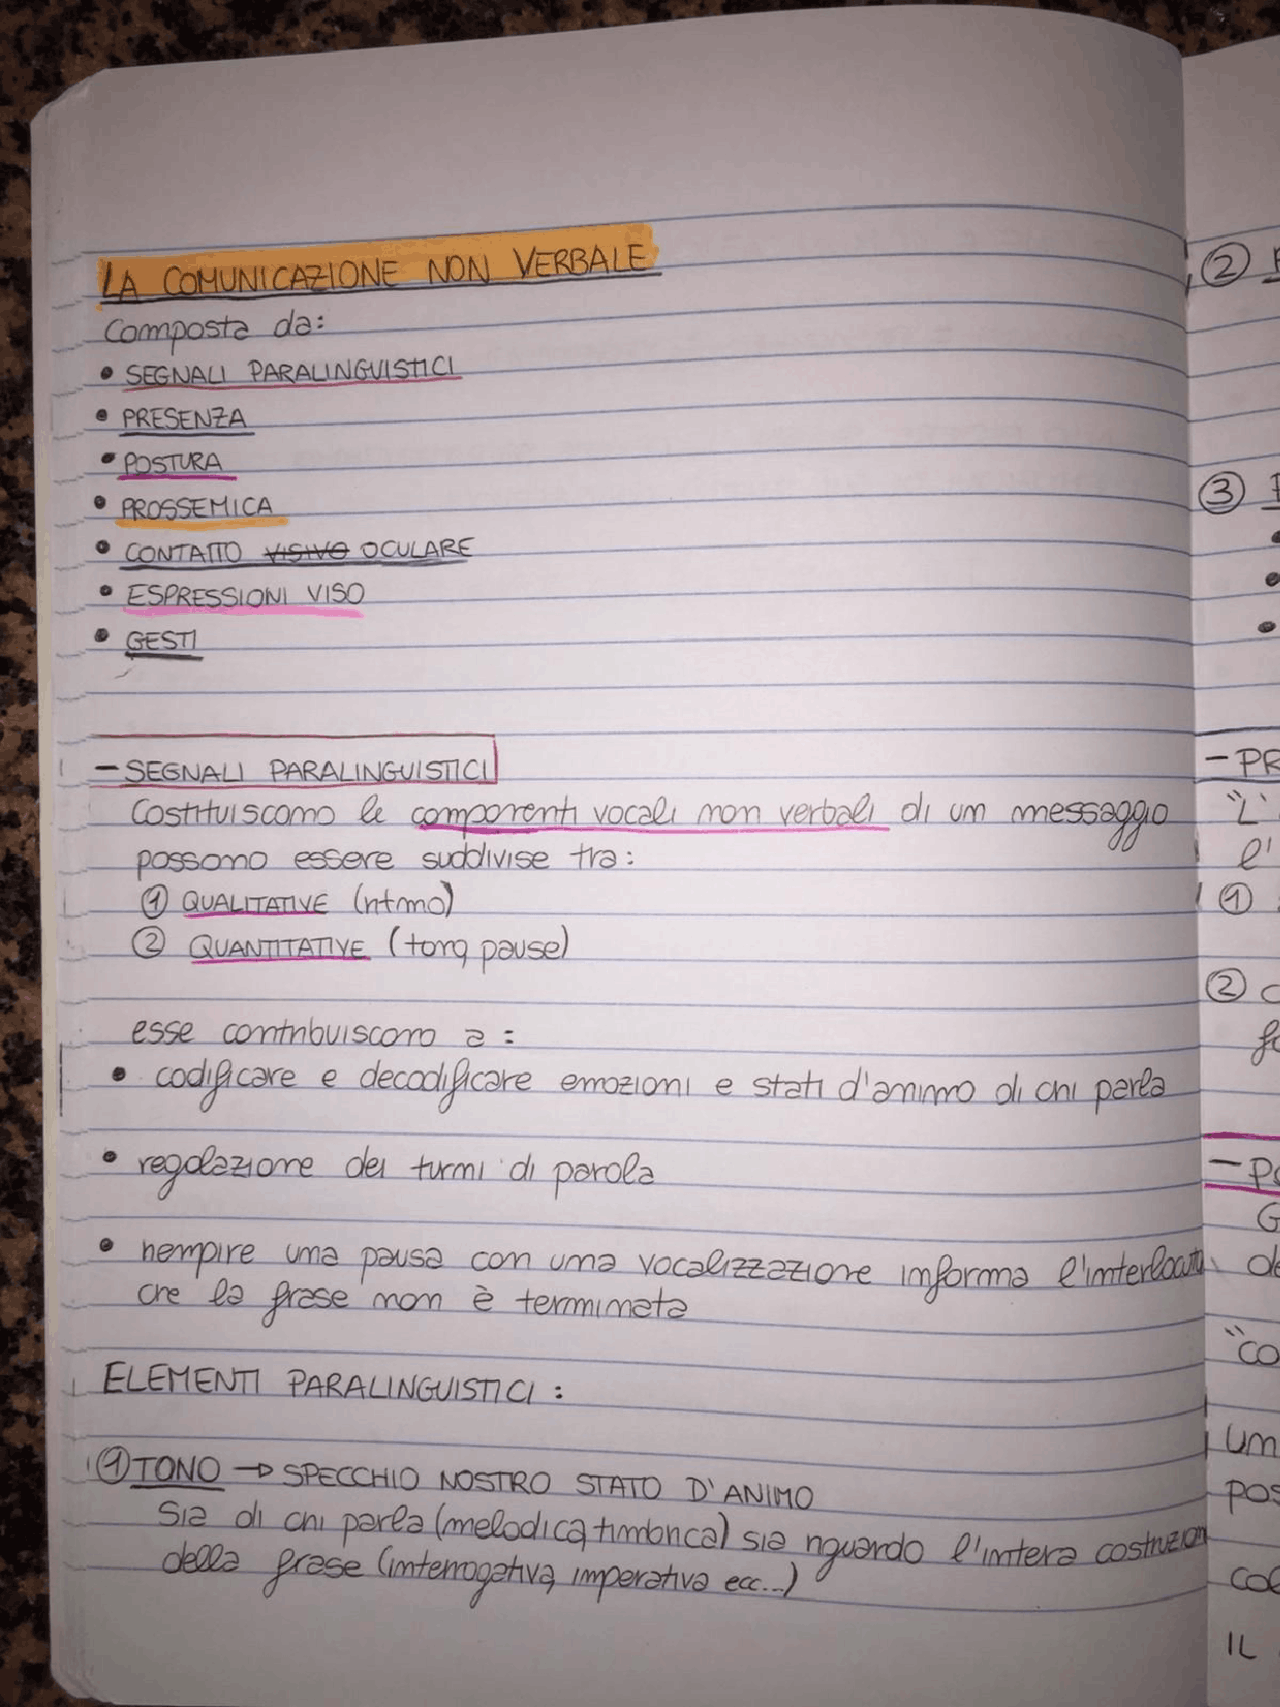 LA COMUNICAZIONE NON VERBALE
Composta da:
• SEGNALI PARALINGUISTICI
• PRESENZA
• POSTURA
• PROSSEMICA
• CONTATTO VISIVO OCULARE
• ESPRESSIONI VISO
• GESTI
- SEGNALI PARALINGUISTICI
Costituiscono le componenti vocali non verbali di un messaggio
possono essere suddivise tra:
① QUALITATIVE (ritmo)
② QUANTITATIVE (tono, pause)
esse contribuiscono a :
• codificare e decodificare emozioni e stati d'animo di chi parla
• regolazione dei turni di parola
• riempire una pausa con una vocalizzazione informa l'interlocutore
che la frase non è terminata
ELEMENTI PARALINGUISTICI :
① TONO → SPECCHIO NOSTRO STATO D'ANIMO
Sia di chi parla (melodica, timbrica) sia riguardo l'intera costruzion
della frase (interrogativa, imperativa ecc...)
②
③
- PR
"L'
l'
①
② C
- Po
G
"CO
um
pos
col
IL